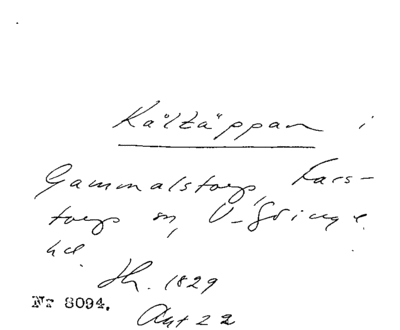 Kältäppan i
Gammalstorp, Fars-
torps sn, V-Göinge
hd.
Sh. 1829
Nr 8094.
Akt 22